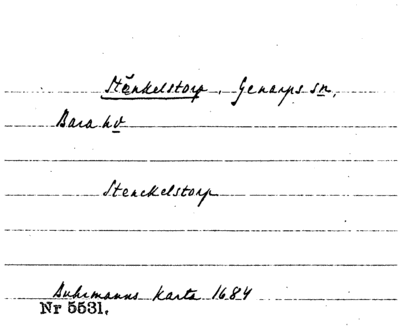 Stänkelstorp, Genarps sn,
Bara hd
Stenckelstorp
Buhrmanns karta 1684
Nr 5531.